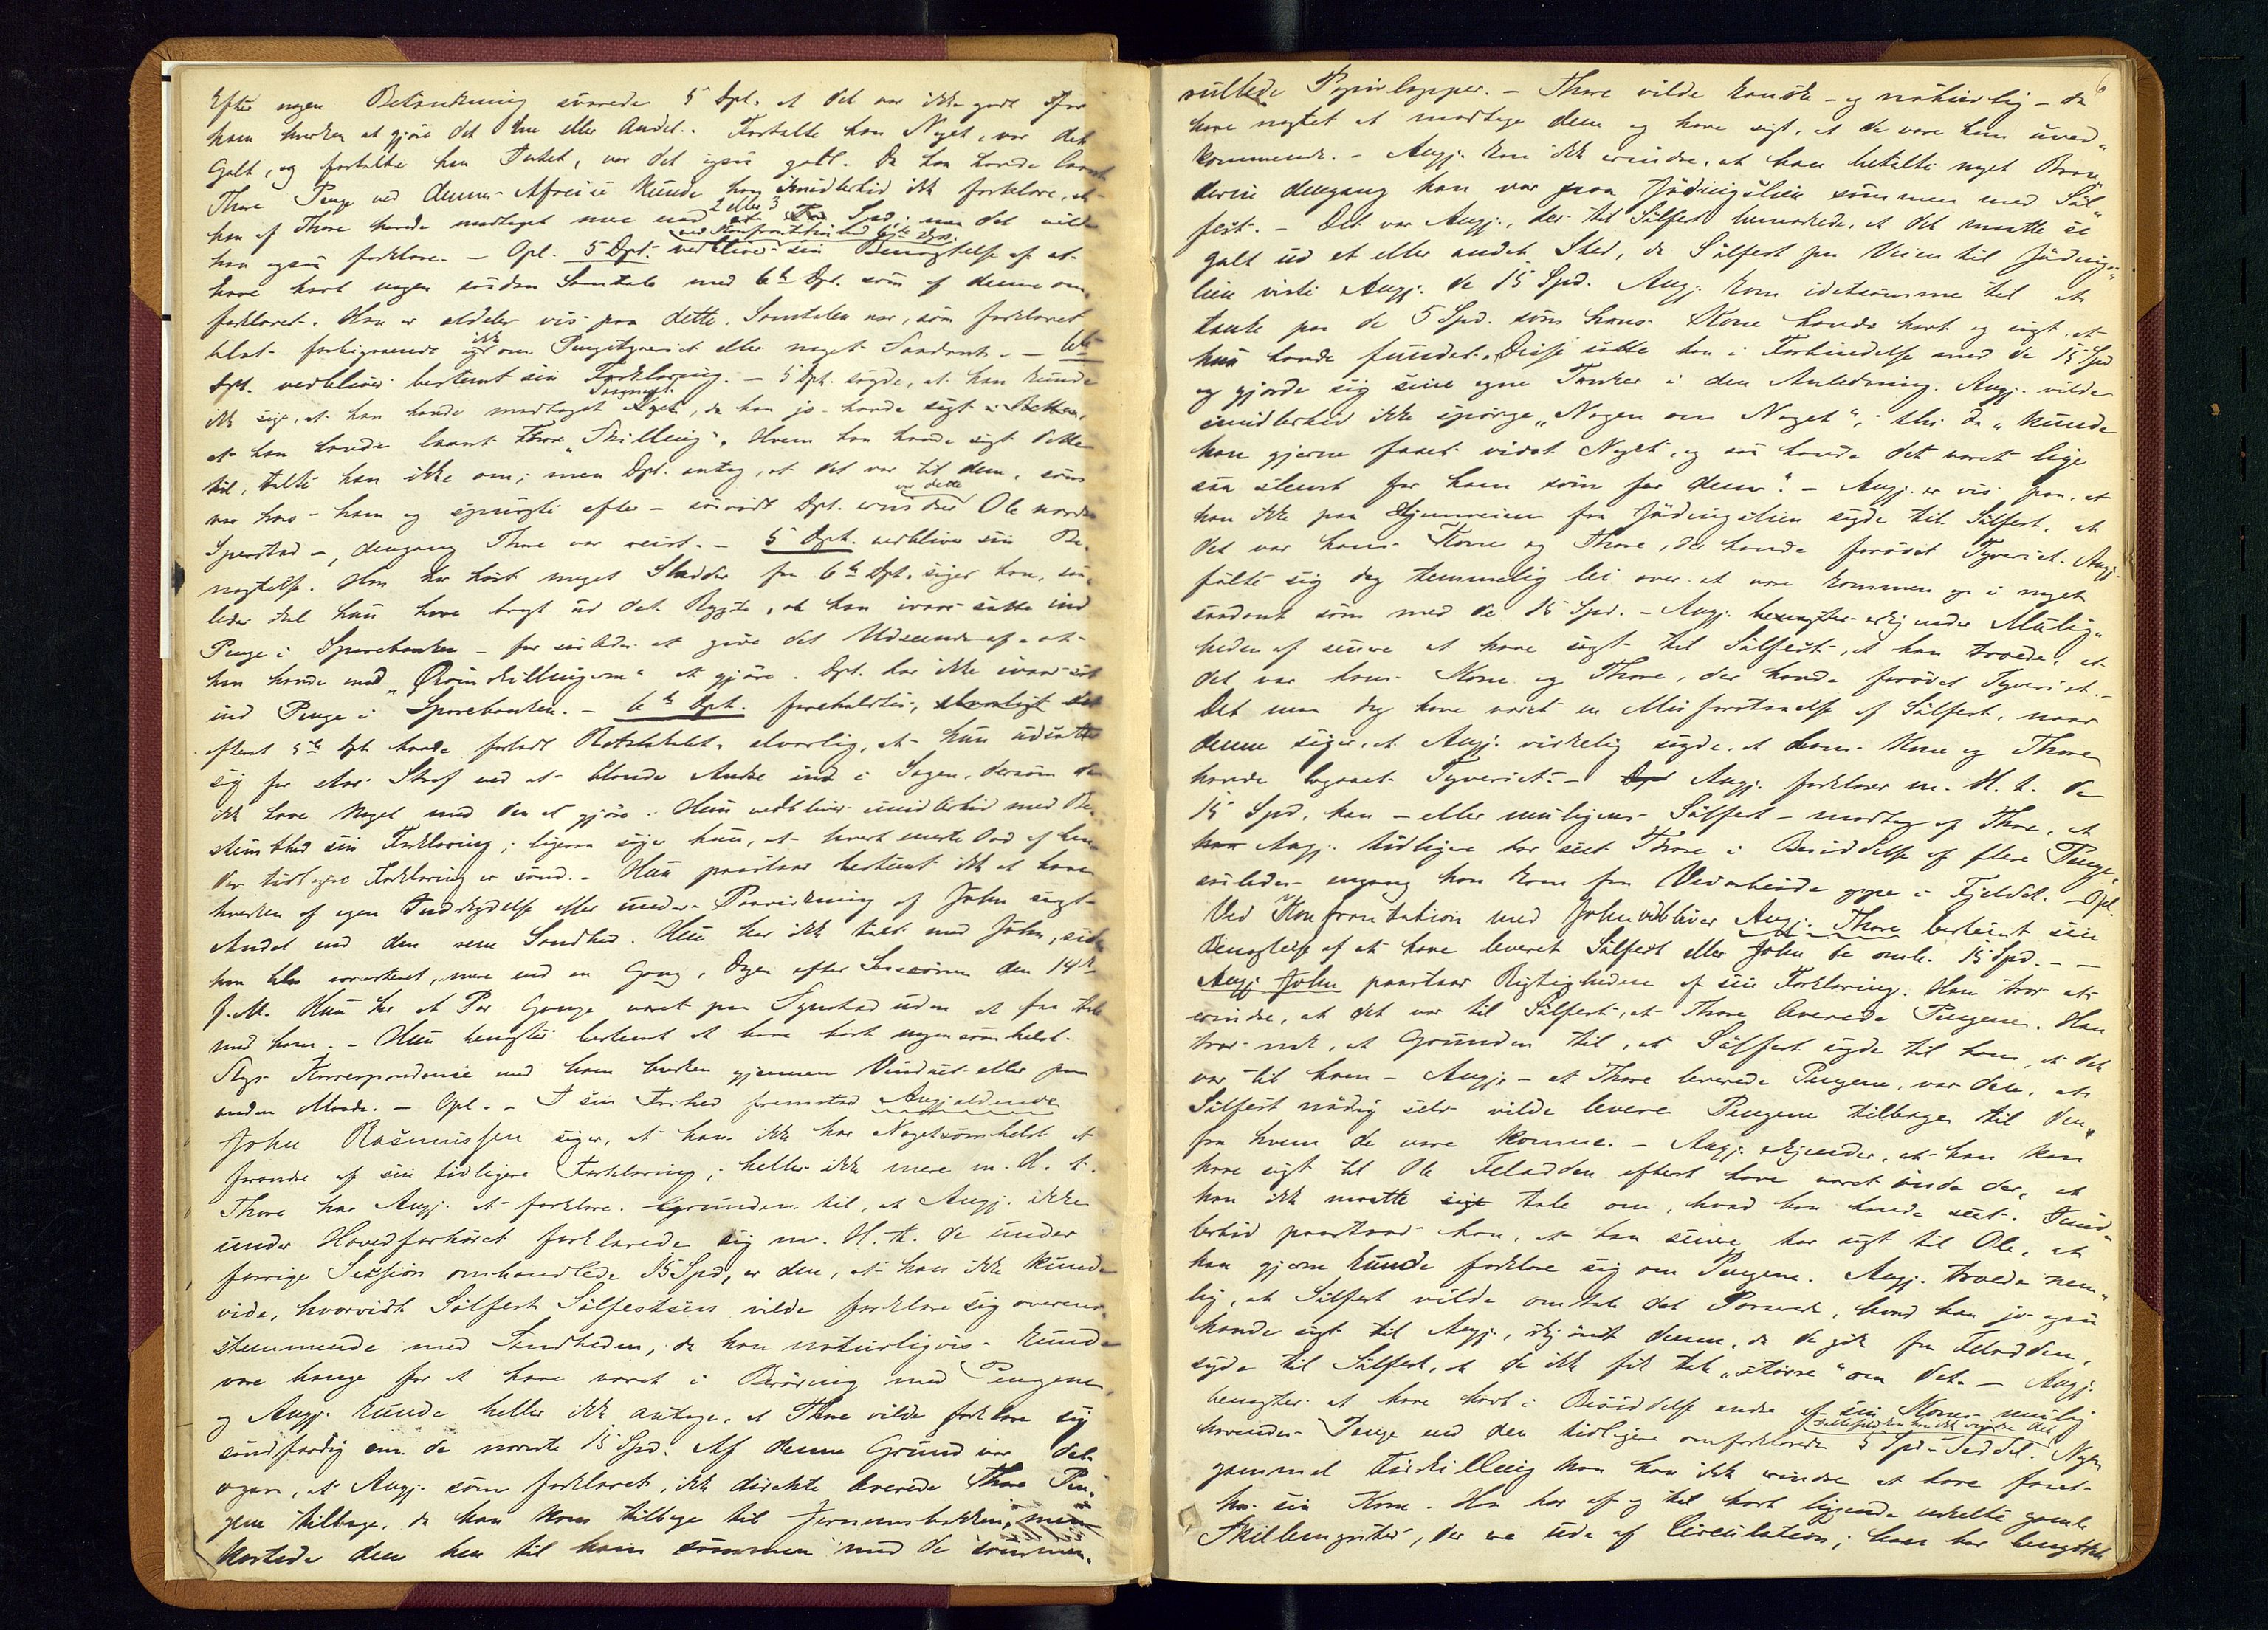 Efter nogen Betænkning svarede 5 Dpt. at det var ikke godt for
ham hverken at gjøre det Ene eller Andet. Fortalte han Noget, var det
Galt, og fortalte han Intet, var det ogsaa galt. Da han havde laant
Thore Penge ved dennes Afreise kunde han imidlertid ikke forklare, at
han af Thore havde modtaget mere end 2 eller 3 Spd; men det vilde
han ogsaa forklare. — Opl. 5 Dpt. vedbliver ved Konfrontation med 6te Dpt. sin Benægtelse af at
have havt nogen saadan Samtale med 6te Dpt. som af denne om-
forklaret. Han er aldeles vis paa dette. Samtalen var, som forklaret
blot forbigaaende ikke om Pengetyveriet eller noget Saadant. — 6te
Dpt. vedbliver bestemt sin Forklaring. — 5 Dpt. sagde, at han kunde
ikke sige, at han havde modtaget , da han jo havde sagt i Retten,
at han havde laant Thore "Skilling". Hvem han havde sagt dette
til, talte han ikke om; men Dpt. antog, at det var til dem, som
var hos ham og spurgte efter — saavidt Dpt. erindrer var dette Ole nordre
Sperstad —, dengang Thore var reist. — 5 Dpt. vedbliver sin Be-
nægtelse. Han har hørt meget Sladder fra 6te Dpt. siger han, saa-
ledes skal hun have bragt ud det Rygte, at han ivaar satte ind
Penge i Sparebanken — for saaledes at give det Udseende af at
han havde med "Øvinskillingerne" at gjøre. Dpt. har ikke ivaar sat
ind Penge i Sparebanken. — 6te Dpt. foreholdtes,
efterat 5te Dpt havde forladt Retslokalet, alvorlig, at hun udsatte
sig for stor Straf ved at blande Andre ind i Sagen, dersom de
ikke have Noget med den at gjøre. Hun vedbliver imidlertid med Be-
stemthed sin Forklaring; ligesom siger hun, at hvert eneste Ord af hen-
des tidligere Forklaring er sand. — Hun paastaar bestemt ikke at have
hverken af egen Indskydelse eller under Paavirkning af John sagt
Andet end den rene Sandhed. Hun har ikke talt med John, siden
han blev arresteret, mere end en Gang, Dagen efter Sessionen den 14de
f.M. Hun har et Par Gange været paa Synstad uden at faa tale
med ham. — Hun benægter bestemt at have havt nogensomhelst
Slags Korrespondanse med ham hverken gjennem Vinduet eller paa
anden Maade. — Opl. — I sin Frihed fremstod Angjældende
John Rasmussen siger, at han ikke har Nogetsomhelst at
forandre af sin tidligere Forklaring; heller ikke mere m. H. t.
Thore har Angj. at forklare. Grunden til, at Angj. ikke
under Hovedforhøret forklarede sig m. H. t. de under
forrige Session omhandlede 15 Spd, er den, at han ikke kunde
vide, hvorvidt Sølfest Sølfestsen vilde forklare sig overens-
stemmende med Sandheden, da han naturligvis kunde
være bange for at have været i Berøring med Pengene,
og Angj. kunde heller ikke antage, at Thore vilde forklare sig
sandfærdig om de nævnte 15 Spd. Af denne Grund var det
ogsaa, at Angj. som forklaret, ikke direkte leverede Thore Pen-
gene tilbage, da han kom tilbage til men
kastede dem hen til ham sammen med de sammen-
rullede Papirlapper. — Thore vilde kanske — og naturlig — da
have nægtet at modtage dem og have sagt, at de vare ham uved-
kommende. — Angj. kan ikke erindre, at han betalte noget Bræn-
devin dengang han var paa Jødingslien sammen med Søl-
fest. — Det var Angj., der til Sølfest bemærkede, at det maatte se
galt ud et eller andet Sted, da Sølfest paa Veien til Jødings-
lien viste Angj. de 15 Spd. Angj. kom idetsamme til at
tænke paa de 5 Spd. som hans Kone havde havt og sagt, at
hun havde fundet. Disse satte han i Forbindelse med de 15 Spd
og gjorde sig sine egne Tanker i den Anledning. Angj. vilde
imidlertid ikke spørge "Nogen om Noget", thi da "kunde
han gjerne faaet vidst Noget, og saa havde det været lige
saa slemt for ham som for dem". — Angj. er vis paa, at
han ikke paa Hjemveien fra Jødingslien sagde til Sølfest, at
det var hans Kone og Thore, der havde forøvet Tyveriet. Angj.
følte sig dog temmelig lei over at være kommen op i noget
saadant som med de 15 Spd. — Angj. erkjender Mulig-
heden af senere at have sagt til Sølfest, at han troede, at
det var hans Kone og Thore, der havde forøvet Tyveriet. —
Det maa dog have været en Misforstaaelse af Sølfest, naar
denne siger, at Angj. virkelig sagde, at hans Kone og Thore
havde begaaet Tyveriet. — Angj. forklarer m. H. t. de
15 Spd, han — eller muligens Sølfest — modtog af Thore, at
Angj. tidligere har seet Thore i Besiddelse af flere Penge,
saaledes engang han kom fra Vedarbeide oppe i Fjeldet. — Opl.
Ved Konfrontation med John vedbliver Angj. Thore bestemt sin
Benægtelse af at have leveret Sølfest eller John de omh. 15 Spd. —
Angj. John paastaar Rigtigheden af sin Forklaring. Han tror at
erindre, at det var til Sølfest, at Thore leverede Pengene. Han
tror nok, at Grunden til, at Sølfest sagde til ham, at det
var til ham — Angj. — at Thore leverede Pengene, var den, at
Sølfest nødig selv vilde levere Pengene tilbage til den,
fra hvem de vare komne. — Angj. erkjender, at han kan
have sagt til Ole Feladden efterat have været inde der, at
han ikke maatte tale om, hvad han havde seet. Imid-
lertid paastaar han, at han senere har sagt til Ole, at
han gjerne kunde forklare sig om Pengene. Angj. troede nem-
lig, at Sølfest vilde omtale det Passerede, hvad han jo ogsaa
havde sagt til Angj., idet denne, da de gik fra Feladden,
sagde til Sølfest, at de ikke fik tale "større" om det. — Angj.
benægter at have havt i Besiddelse andre af sin Kone mulig
havende Penge end den tidligere omforklarede 5 Spd-Seddel. Nogen
gammel Tuskilling kan han ikke erindre at have faaet
hos sin Kone. Han har af og til havt liggende enkelte gamle
Skillingsstk., der ere ude af Circulation; han har benyttet